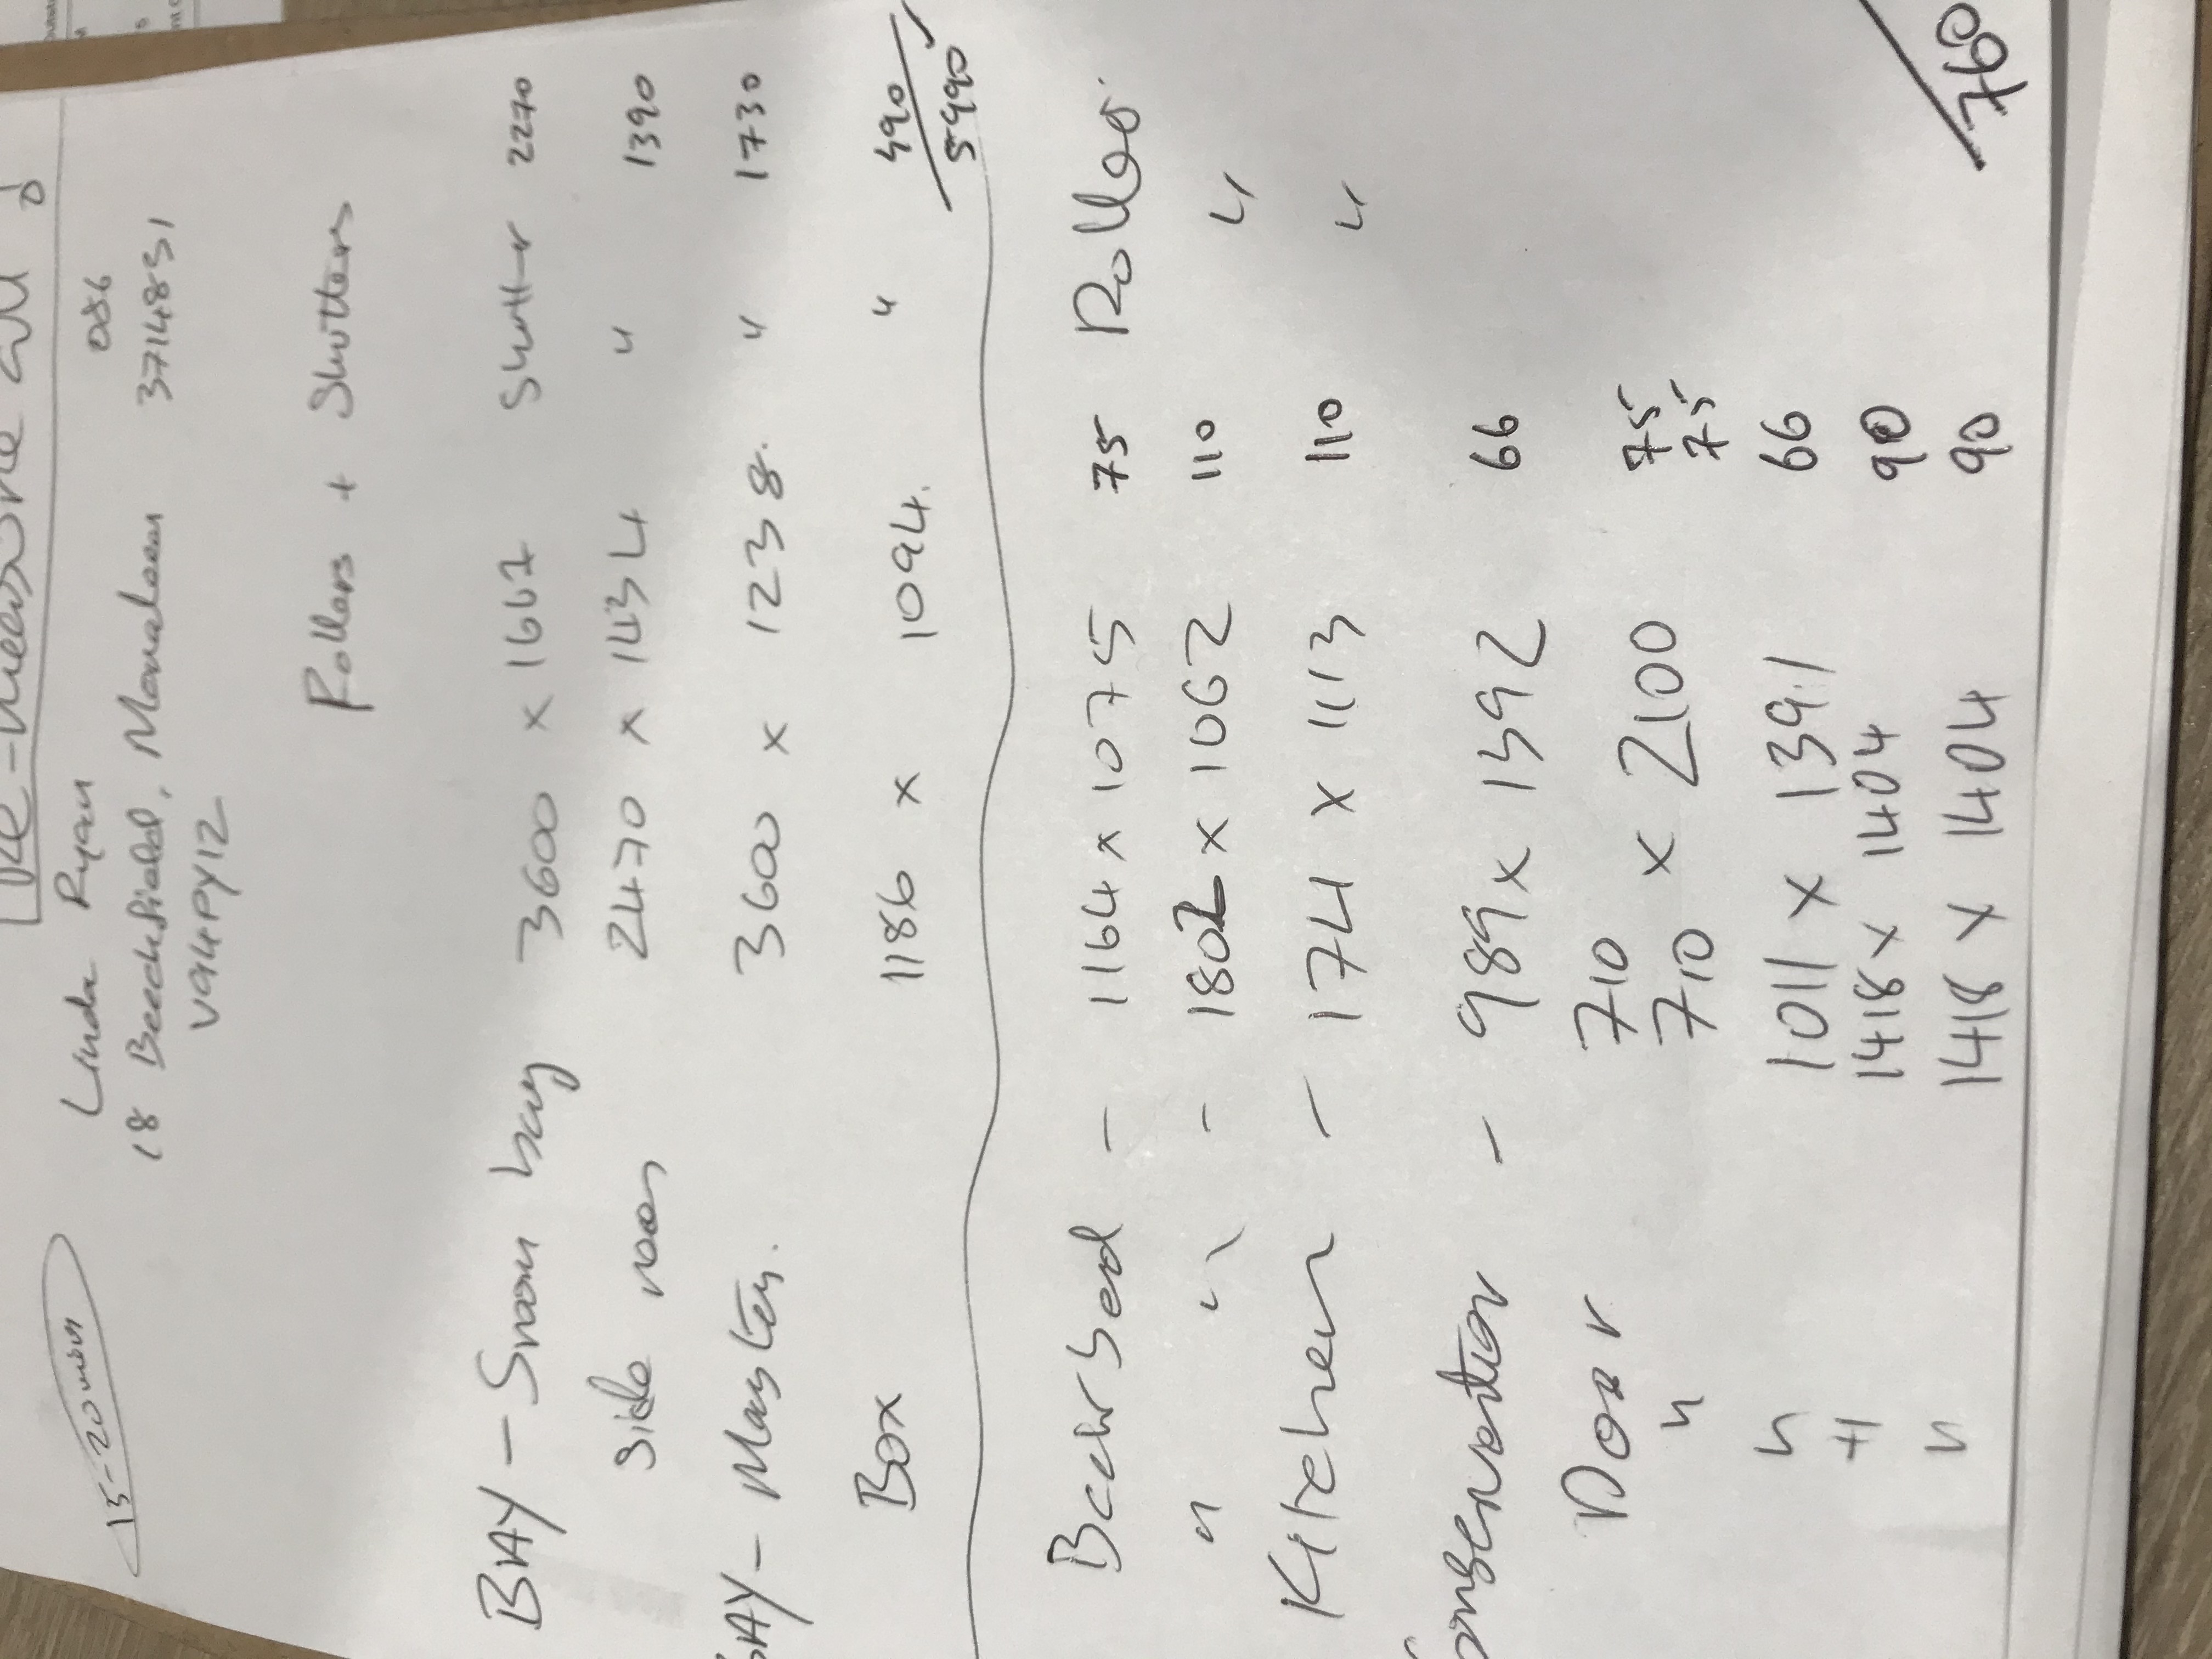 Re-measure all
15-20 mins
Linda Ryan 086
18 Beechfield, Monaleen 3714851
V94PY12
Rollers + Shutters
BAY - Snom bay 3600 x 1667 Shutter 2270
Side room 2470 x 1434 " 1390
BAY - Master. 3600 x 1238. " 1730
Box 1186 x 1094. " 490
5990
Back Bed - 1164 x 1075 75 Roller
" " - 1802 x 1062 110 "
Kitchen - 1741 x 1113 110 "
Conservation - 989 x 1392 66
Door 710 75
" 710 x 2100 75
" 1011 x 1391 66
11 1418 x 1404 90
" 1418 x 1404 90
760